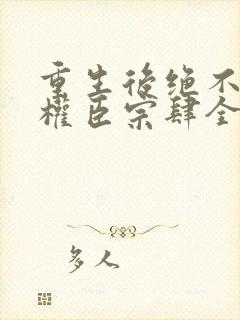 重生後绝不
權臣宗肆全
多人